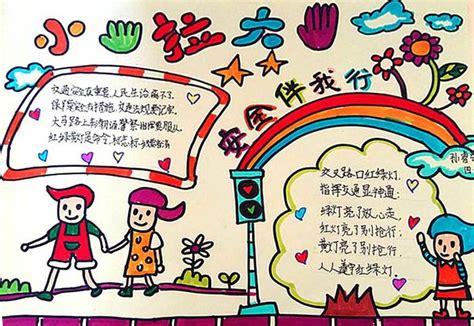 小拉大
安全伴我行
交通安全很重要,人民生活离不了.
保护安全有措施,交通法规要记牢.
大马路上别胡闹,警察指挥要服从
红绿灯是命令,
交叉路口红绿灯.
指挥交通显神通:
绿灯亮了放心走.
红灯亮了别抢行.
黄灯亮了别抢行.
人人遵守红绿灯.
四